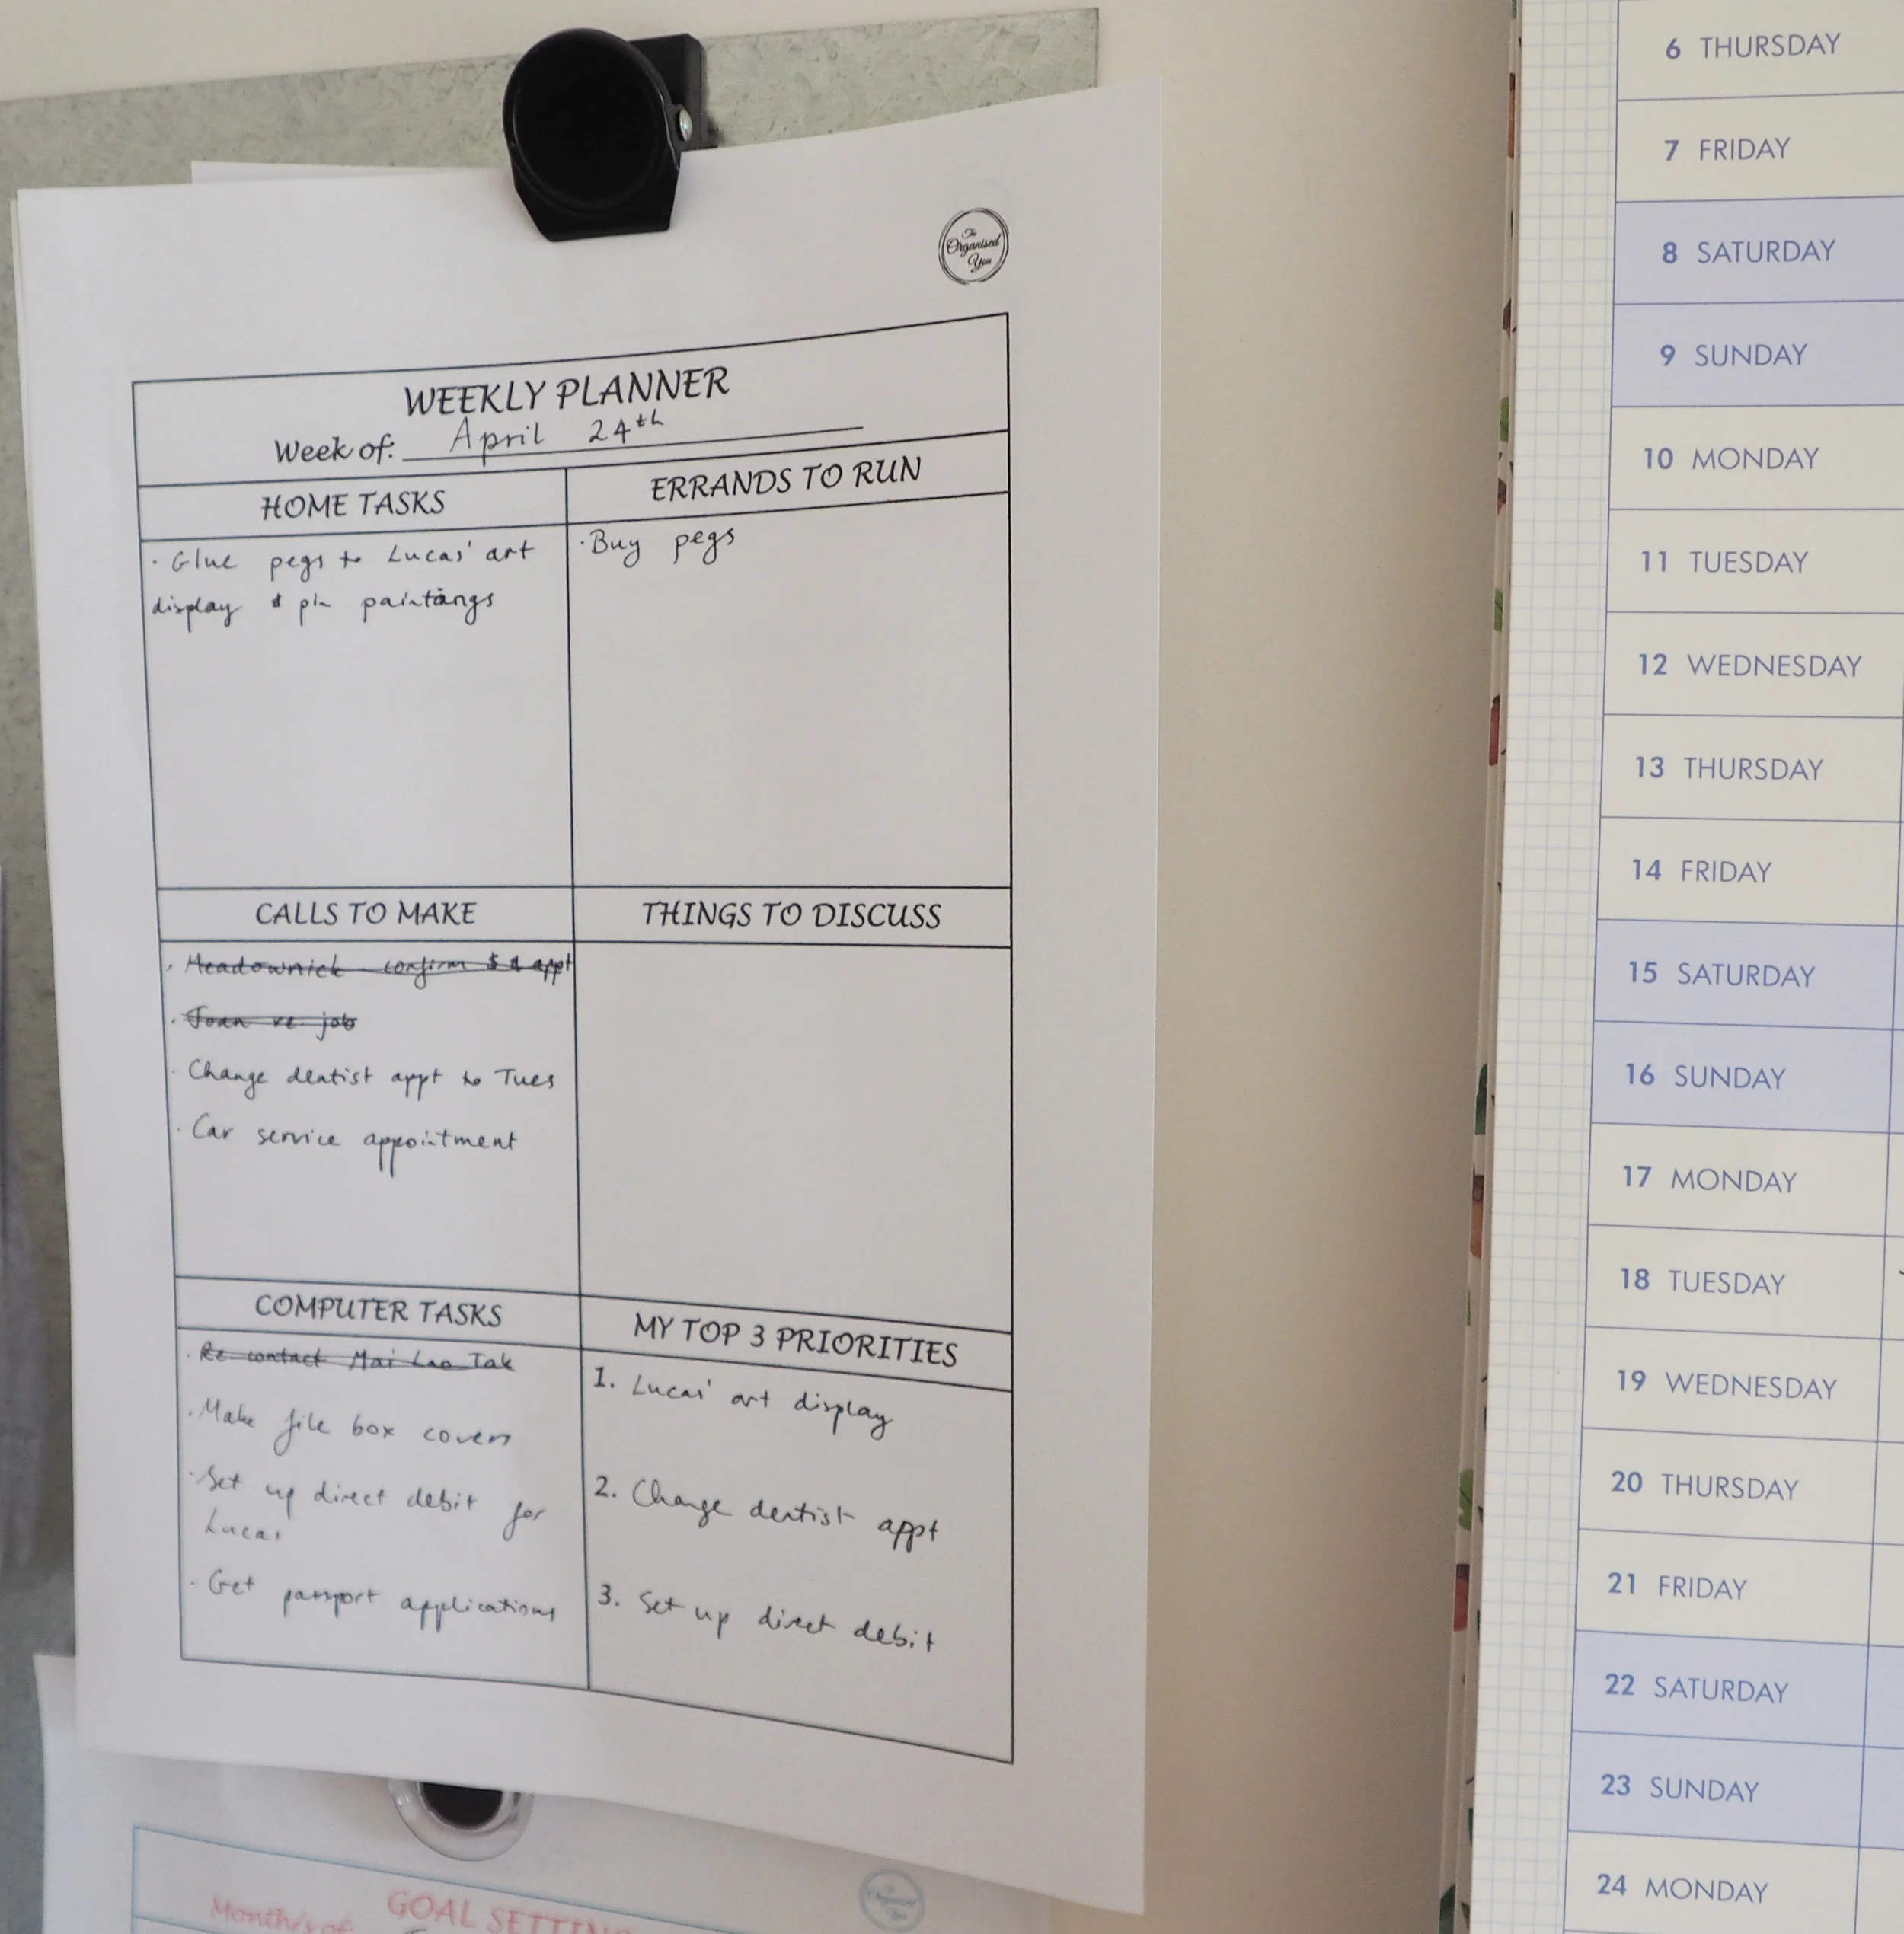 The
Organised
You
WEEKLY PLANNER
Week of: April 24th
HOME TASKS
· Glue pegs to Lucas' art
display & pin paintings
ERRANDS TO RUN
· Buy pegs
CALLS TO MAKE
· confirm $ & appt
· Joan re. job
· Change dentist appt to Tues
· Car service appointment
THINGS TO DISCUSS
COMPUTER TASKS
· Re-contact Mai Lao Tak
· Make file box covers
· Set up direct debit for
Lucas
· Get passport applications
MY TOP 3 PRIORITIES
1. Lucas' art display
2. Change dentist appt
3. Set up direct debit
Month/s of:
GOAL
6 THURSDAY
7 FRIDAY
8 SATURDAY
9 SUNDAY
10 MONDAY
11 TUESDAY
12 WEDNESDAY
13 THURSDAY
14 FRIDAY
15 SATURDAY
16 SUNDAY
17 MONDAY
18 TUESDAY
19 WEDNESDAY
20 THURSDAY
21 FRIDAY
22 SATURDAY
23 SUNDAY
24 MONDAY